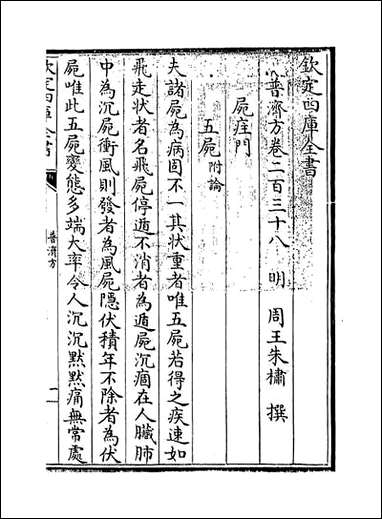 欽定四庫全書
普濟方卷二百三十八　明　周王朱橚　撰
屍疰門
五屍附論
夫諸屍為病固不一其狀重者唯五屍若得之疾速如
飛走状者名飛屍停遁不消者為遁屍沉痼在人臟肺
中為沉屍衝風則發者為風屍隠伏積年不除者為伏
屍唯此五屍變態多端大率令人沉沉黙黙痛無常處
欽定四庫全書
普濟方
一